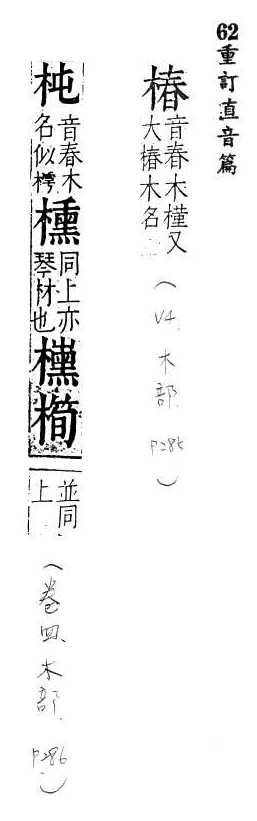 62重訂直音篇
椿音春木槿又大椿木名
(V4.木部.P286)
杶音春木名似樗櫄同上亦琴材也櫄橁並同上
(卷四、木部、P286)